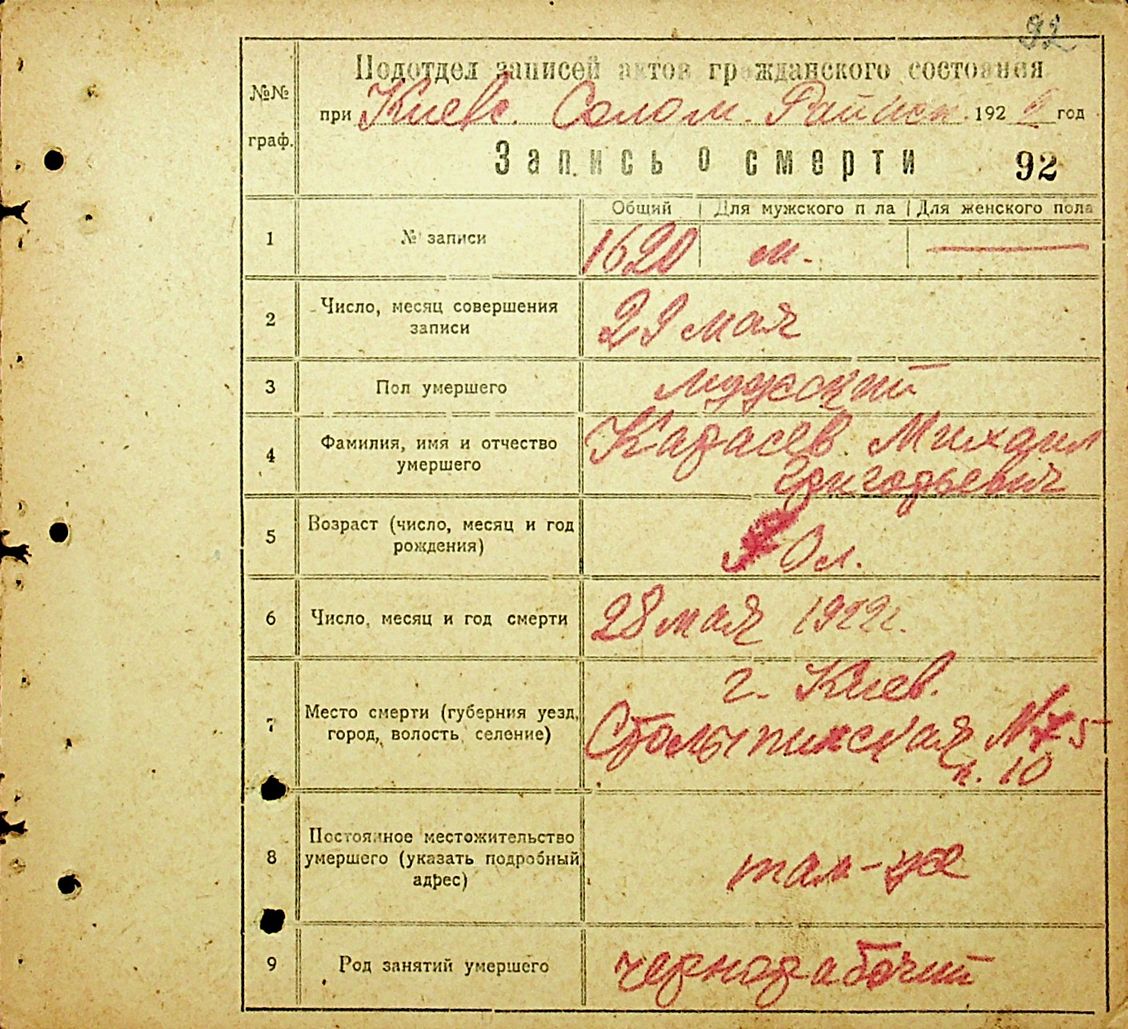 92
№№ граф.
Подотдел записей актов гражданского состояния
при Киевс. Солом. Райисп. 192 год
Запись о смерти 92
Общий | Для мужского п ла | Для женского пола
1 № записи 1620 м. —
2 Число, месяц совершения
записи
29 мая
3 Пол умершего мужской
4 Фамилия, имя и отчество
умершего
Карасев Михаил
Григорьевич
5 Возраст (число, месяц и год
рождения)
0л.
6 Число, месяц и год смерти 28 мая 1922г.
7 Место смерти (губерния уезд,
город, волость, селение)
г. Киев.
Столыпинская № 5
к. 10
8 Постоянное местожительство
умершего (указать подробный
адрес)
там-же
9 Род занятий умершего чернорабочий